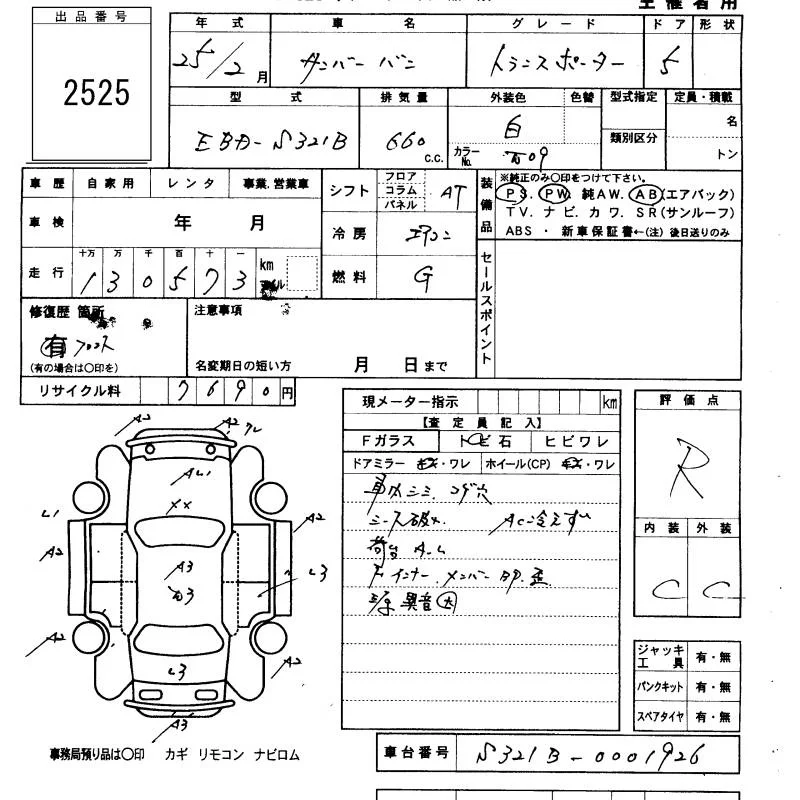 主催者用
出品番号
2525
年式 車名 グレード ドア 形状
25/2月 サンバーバン トランスポーター 5
型式 排気量 外装色 色替 型式指定 定員・積載
EBD-S321B 660 c.c. 白 カラーNo. 類別区分 名
トン
車歴 自家用 レンタ 事業.営業車
シフト フロア コラム パネル AT
装備品 ※純正のみ○印をつけて下さい。
PS. PW. 純AW. AB(エアバック)
TV. ナビ. カワ. SR(サンルーフ)
ABS ・ 新車保証書←(注) 後日送りのみ
車検 年 月
冷房 エアコン
走行 十万 万 千 百 十 一
130573 km マイル
燃料 G
セールスポイント
修復歴 箇所
有 フロント
(有の場合は○印を)
注意事項
名変期日の短い方 月 日まで
リサイクル料 7690円
現メーター指示 km
【査定員記入】
Fガラス トビ石 ヒビワレ
ドアミラー キズ・ワレ ホイール(CP) キズ・ワレ
車内シミ コゲ穴
シート破れ AC冷えず
荷台 A-L
Fインナー メンバー 凹 歪
異音 大
評価点
R
内装 外装
C C
A2 A2 ワレ
AL1
XX
L1 A2
A2
A3
L3
A2 A2
L3
A3
ジャッキ工具 有・無
パンクキット 有・無
スペアタイヤ 有・無
事務局預り品は○印 カギ リモコン ナビロム
車台番号 S321B-0001926